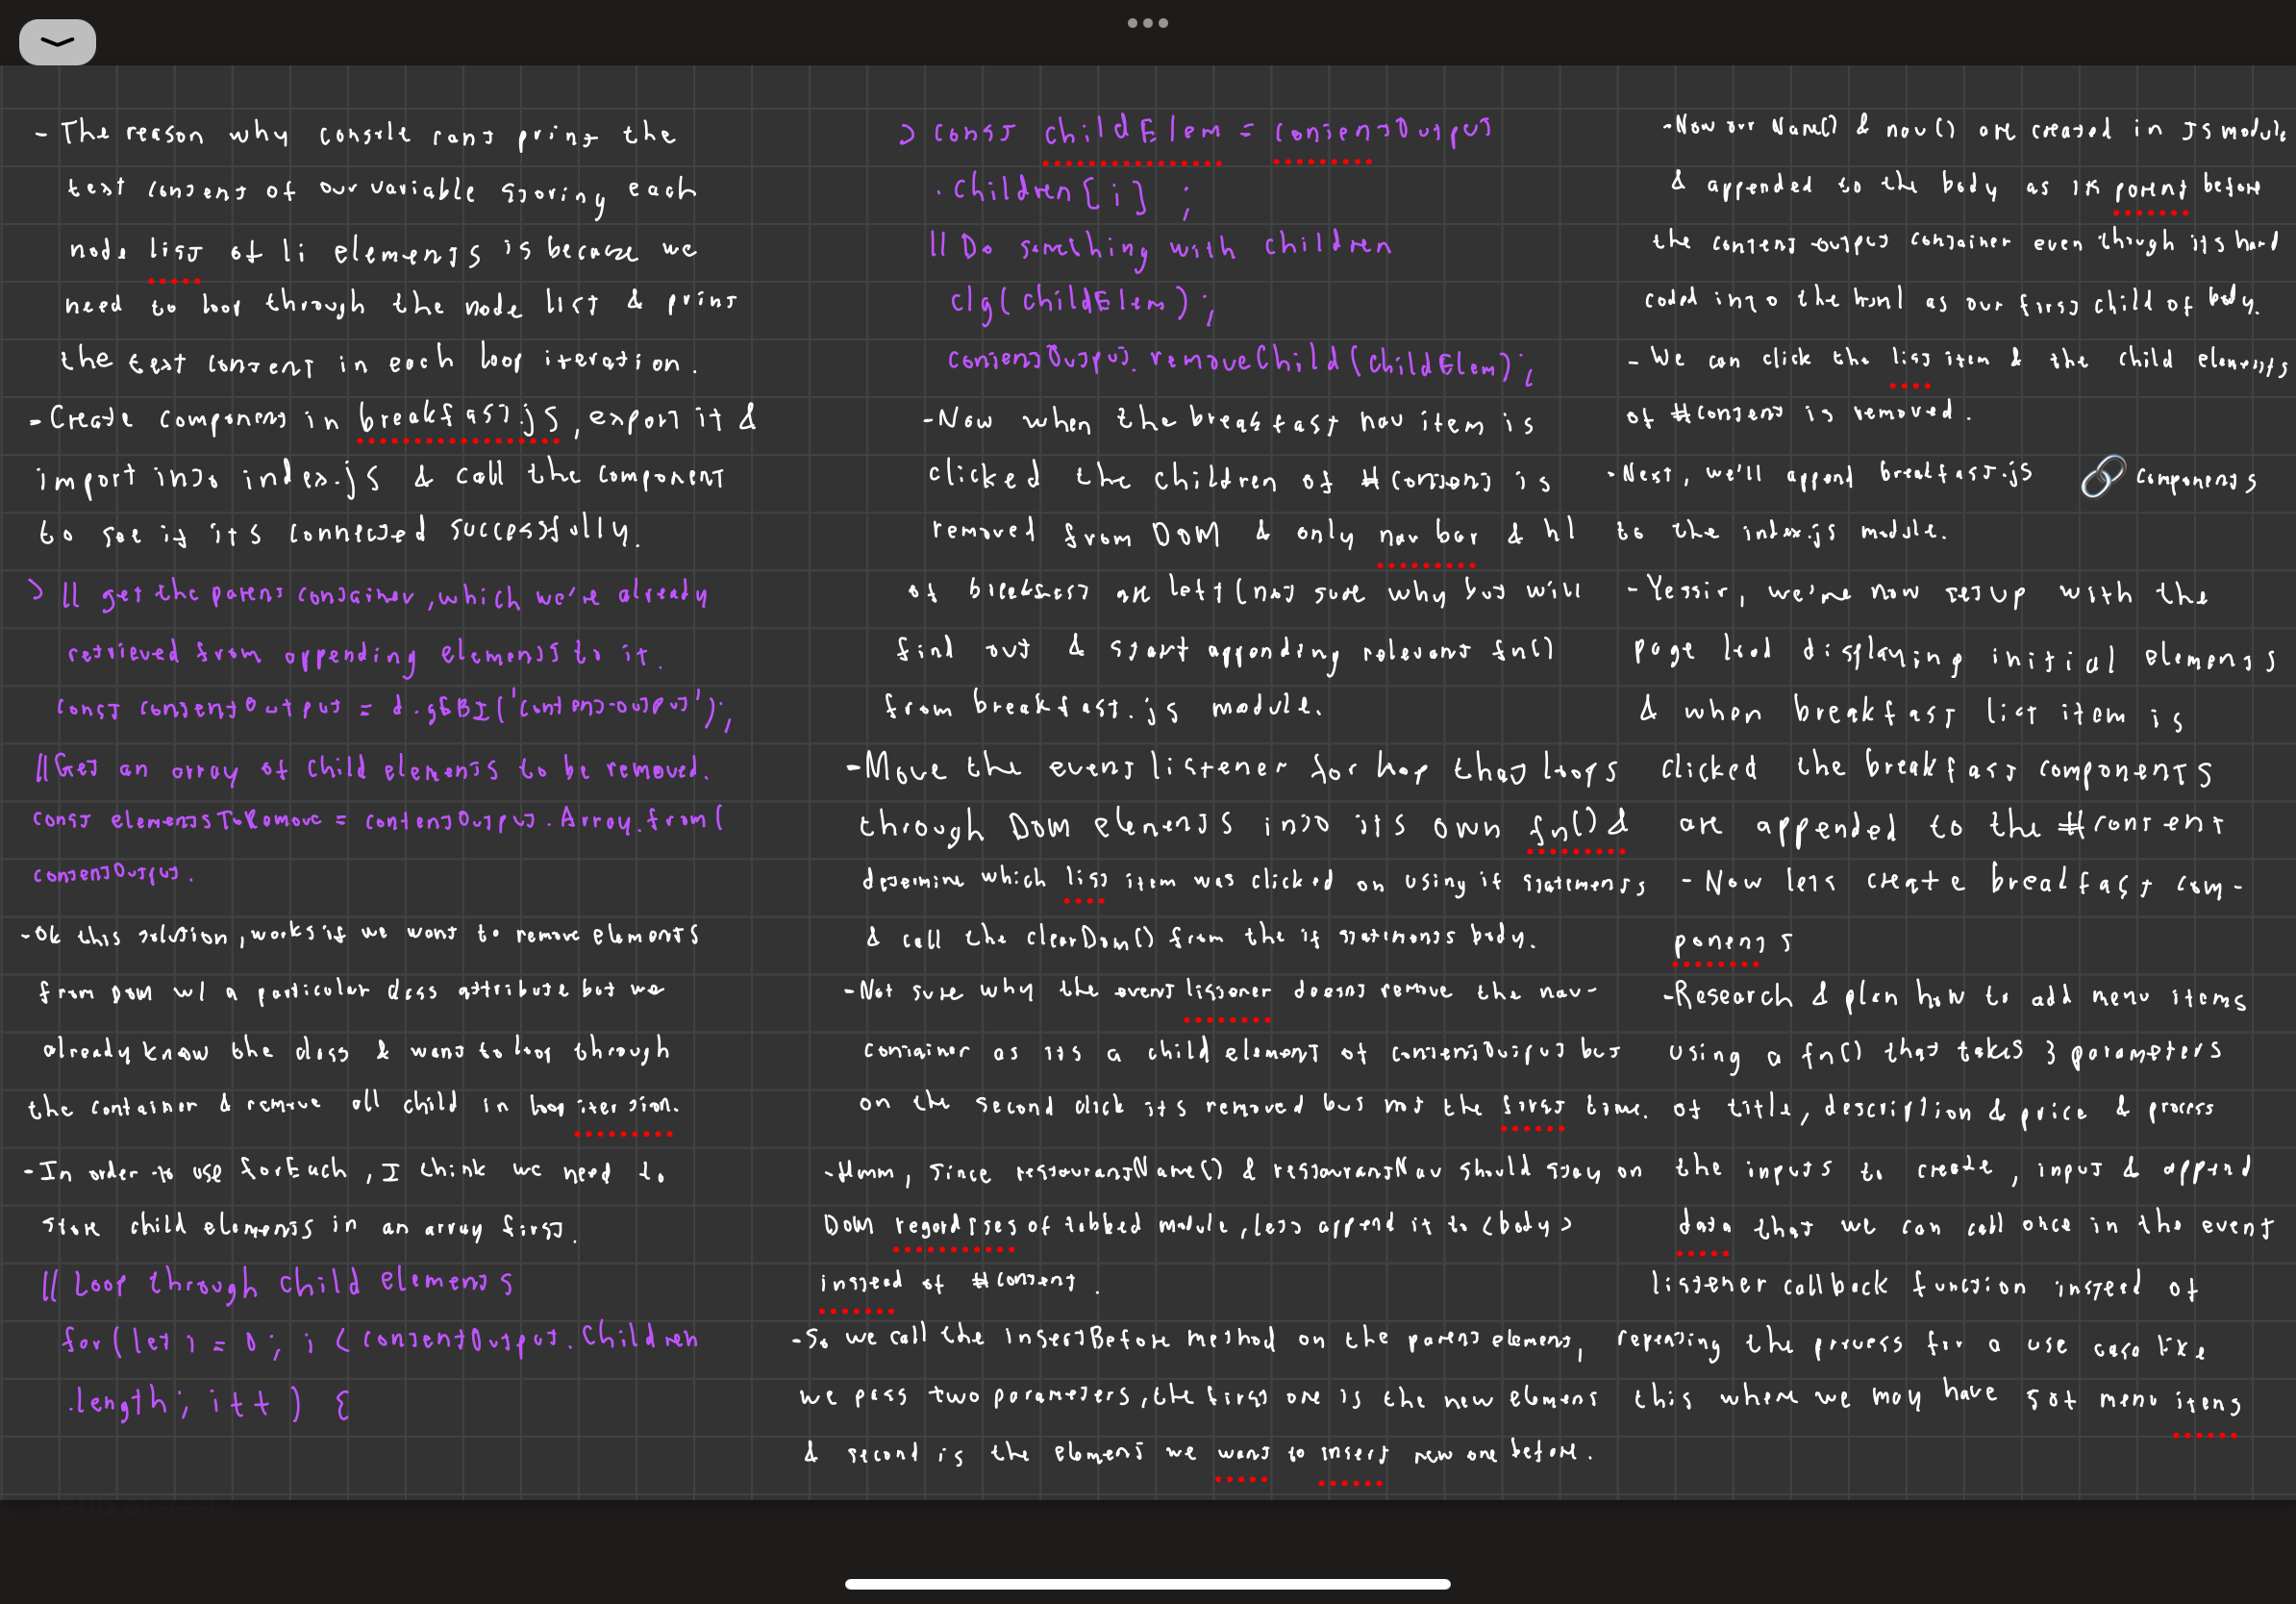 - The reason why console cant print the
text content of our variable storing each
node list of li elements is because we
need to loop through the node list & print
the text content in each loop iteration.
- Create component in breakfast.js, export it &
import into index.js & call the component
to see if its connected successfully.
> // get the parent container, which we're already
retrieved from appending elements to it.
const contentOutput = d.gEBI('content-output');
// Get an array of child elements to be removed.
const elementsToRemove = contentOutput.Array.from(
contentOutput.
- Ok this solution, works if we want to remove elements
from DOM w/ a particular class attribute but we
already know the class & want to loop through
the container & remove all child in loop iteration.
- In order to use forEach, I think we need to
store child elements in an array first.
// Loop through child elements
for(let i = 0; i < contentOutput.Children
.length; i++) {
> const childElem = contentOutput
.children[i];
// Do something with children
clg(childElem);
contentOutput.removeChild(childElem);
- Now when the breakfast nav item is
clicked the children of #content is
removed from DOM & only nav bar & h1
of breakfast are left (not sure why but will
find out & start appending relevant fn()
from breakfast.js module.
- Move the event listener for nav that loops
through DOM elements into its own fn() &
determine which list item was clicked on using if statements
& call the clearDom() from the if statements body.
- Not sure why the event listener doesnt remove the nav-
container as its a child element of contentOutput but
on the second click its removed but not the first time.
- Hmm, since restaurantName() & restaurantNav should stay on
DOM regardlses of tabbed module, lets append it to <body>
instead of #content.
- So we call the insertBefore method on the parent element,
we pass two parameters, the first one is the new element
& second is the element we want to insert new one before.
- Now our Name() & nav() are created in JS module
& appended to the body as its parent before
the content-output container even though its hard
coded into the html as our first child of body.
- We can click the list item & the child elements
of #content is removed.
- Next, we'll append breakfast.js 🔗 components
to the index.js module.
- Yessir, we're now setup with the
page load displaying initial elements
& when breakfast list item is
clicked the breakfast components
are appended to the #content
- Now lets create breakfast com-
ponents
- Research & plan how to add menu items
using a fn() that takes 3 parameters
of title, description & price & process
the inputs to create, input & append
data that we can call once in the event
listener callback function instead of
repeating the process for a use case like
this where we may have 5 of menu items